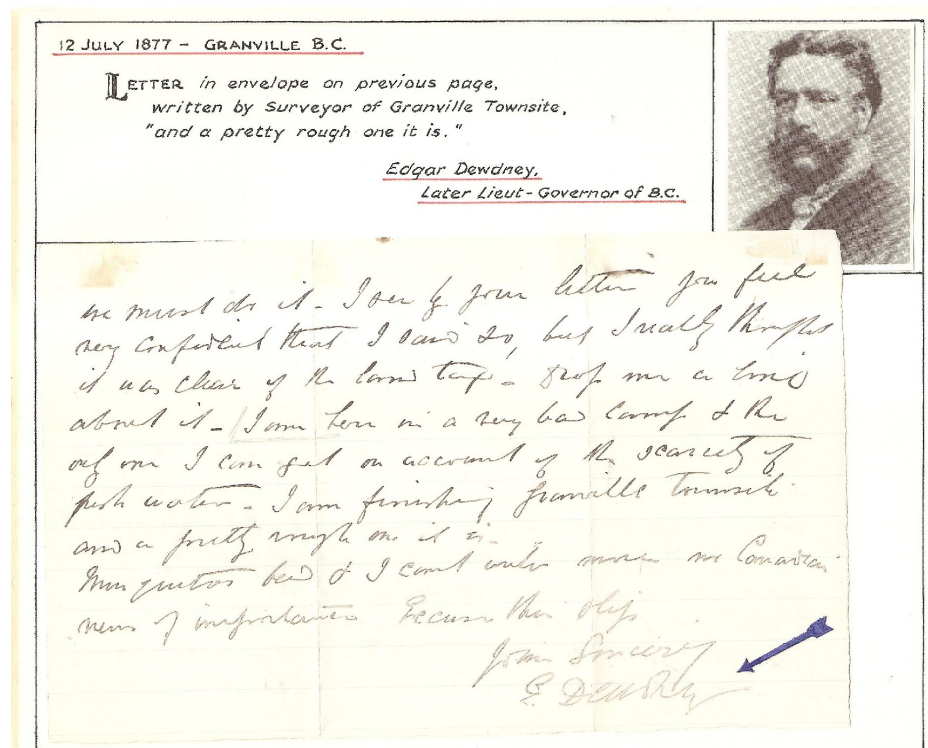 12 JULY 1877 – GRANVILLE B.C.
LETTER in envelope on previous page,
written by Surveyor of Granville Townsite,
"and a pretty rough one it is."
Edgar Dewdney,
Later Lieut-Governor of B.C.
we must do it – I see by your letter you feel
very confident that I said so, but I really thought
it was clear of the land tax – Drop me a line
about it – I am here in a very bad camp & the
only one I can get on account of the scarcity of
fresh water – I am finishing Granville Townsite
and a pretty rough one it is –
bad & I can't write more no Canadian
news of importance Excuse this slip
Yours Sincerely
E. Dewdney